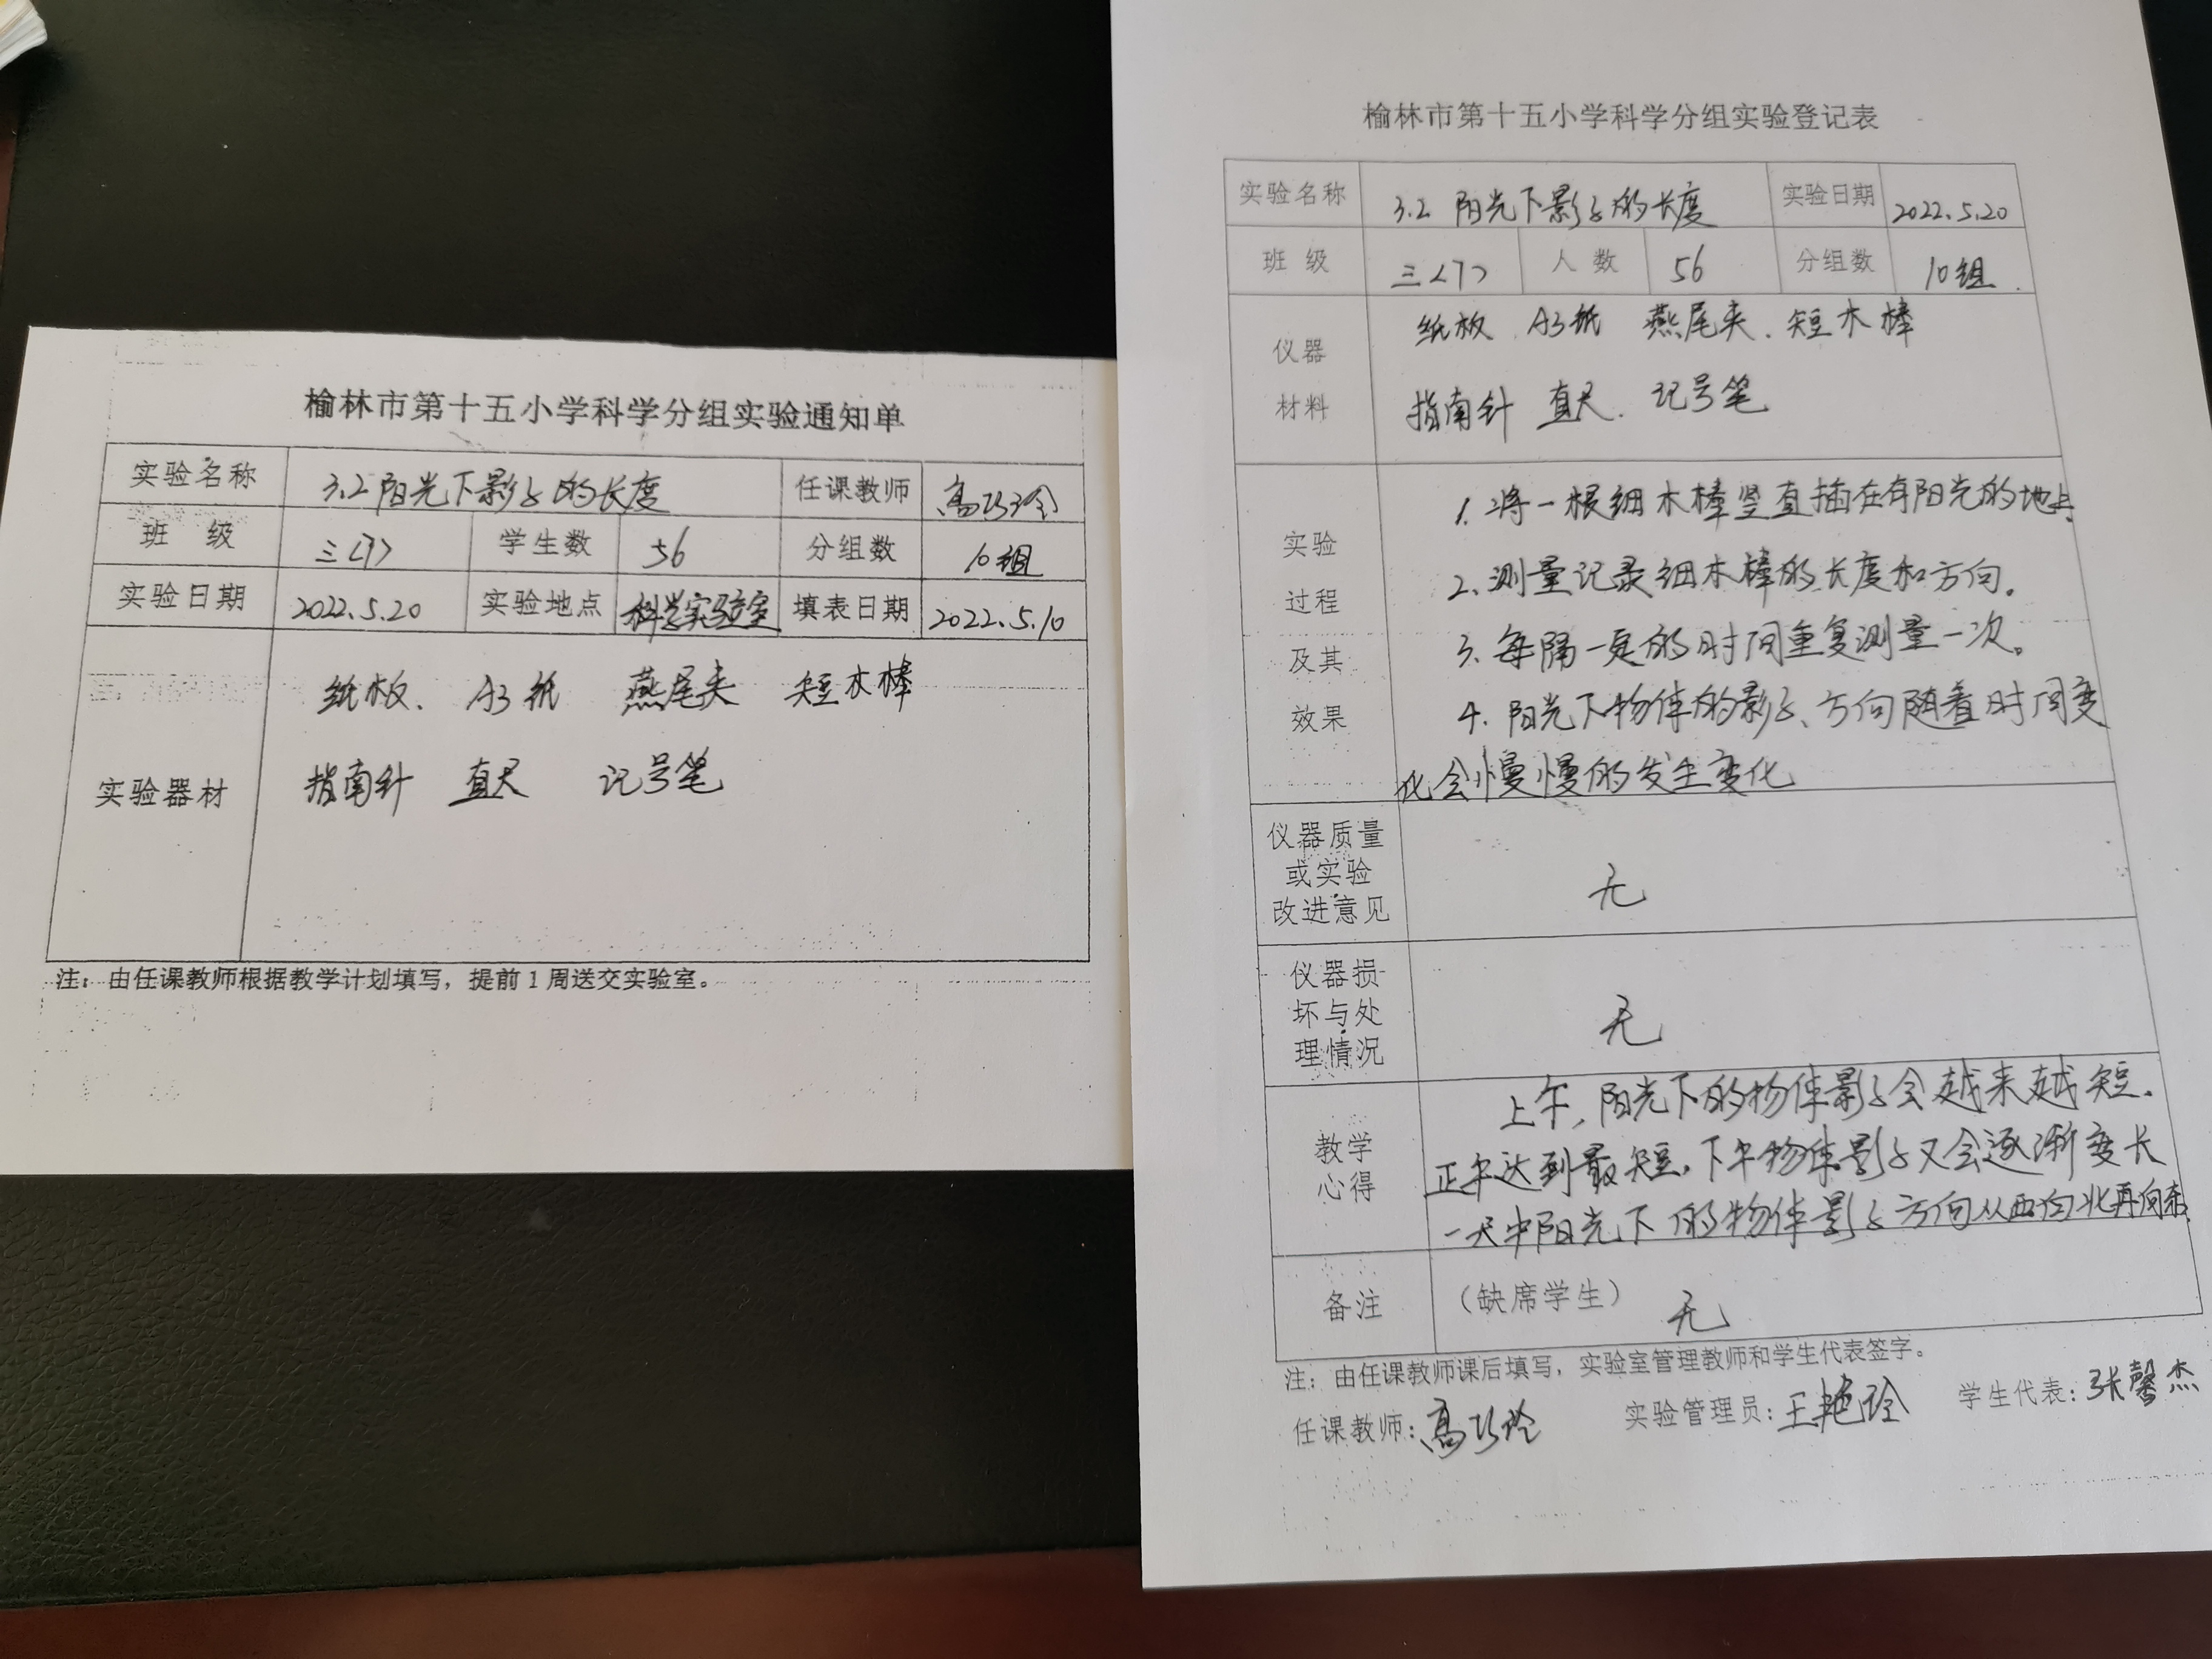 榆林市第十五小学科学分组实验通知单
实验名称 3.2阳光下影子的长度 任课教师 高巧玲
班 级 三<7> 学生数 56 分组数 10组
实验日期 2022.5.20 实验地点 科学实验室 填表日期 2022.5.10
纸板、 A3纸 燕尾夹 短木棒
实验器材 指南针 直尺 记号笔
注：由任课教师根据教学计划填写，提前1周送交实验室。
榆林市第十五小学科学分组实验登记表
实验名称 3.2 阳光下影子的长度 实验日期 2022.5.20
班 级 三<7> 人 数 56 分组数 10组.
仪器 纸板 A3纸 燕尾夹、短木棒
材料 指南针 直尺、记号笔
实验 1.将一根细木棒竖直插在有阳光的地上
过程 2.测量记录细木棒的长度和方向。
及其 3.每隔一定的时间重复测量一次。
效果 4.阳光下物体的影子、方向随着时间变
化会慢慢的发生变化
仪器质量
或实验 无
改进意见
仪器损
坏与处 无
理情况
上午,阳光下的物体影子会越来越短.
教学 正午达到最短,下午物体影子又会逐渐变长
心得 一天中阳光下的物体影子方向从西向北再向东
备注 （缺席学生） 无
注：由任课教师课后填写，实验室管理教师和学生代表签字。
任课教师:高巧玲 实验管理员:王艳玲 学生代表:张馨杰